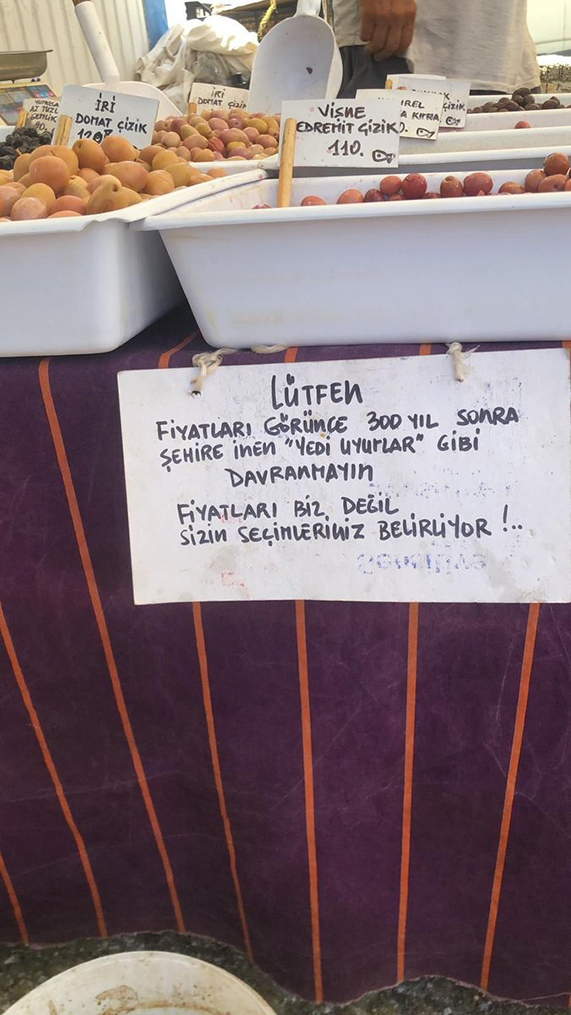 İRİ
DOMAT ÇİZİK
DOMAT ÇİZİK
VİŞNE
EDREMİT ÇİZİK
110.
LÜTFEN
FİYATLARI GÖRÜNCE 300 YIL SONRA
ŞEHİRE İNEN "YEDİ UYURLAR" GİBİ
DAVRANMAYIN
FİYATLARI BİZ DEĞİL
SİZİN SEÇİMLERİNİZ BELİRLİYOR !..